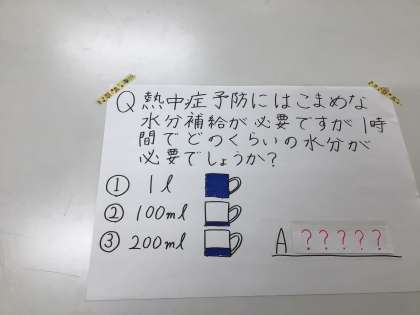 Q 熱中症予防にはこまめな
水分補給が必要ですが1時
間でどのくらいの水分が
必要でしょうか?
① 1l
② 100ml
③ 200ml
A ?????